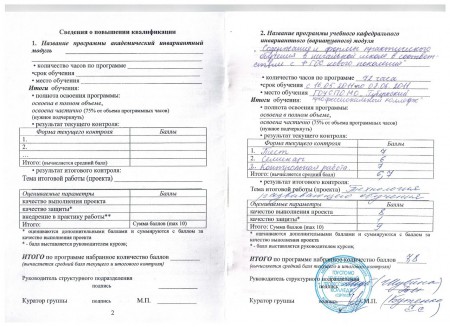 Сведения о повышении квалификации
1. Название программы академический инвариантный
модуль
• количество часов по программе
•срок обучения
• место обучения
Итоги обучения:
• полнота освоения программы:
освоена в полном объеме,
освоена частично (75% от объема программных часов)
(нужное подчеркнуть)
• результат текущего контроля:
Форма текущего контроля Баллы
1.
2.
...
Итого: (вычисляется средний балл)
• результат итогового контроля:
Тема итоговой работы (проекта)
Оцениваемые параметры Баллы
качество выполнения проекта
качество защиты*
внедрение в практику работы**
Итого: Сумма баллов (max 10)
* оценивается дополнительными баллами и суммируется с баллами за
качество выполнения проекта
* - балл выставляется руководителем курсов;
ИТОГО по программе набранное количество баллов
(вычисляется средний балл текущего и итогового контроля)
Руководитель структурного подразделения
подпись
Куратор группы М.П.
подпись
2
2. Название программы учебного кафедрального
инвариантного (вариативного) модуля
Содержание и формы практического
обучения в начальной школе в соответ-
ствии с ФГОС нового поколения
• количество часов по программе 72 часа
•срок обучения с
• место обучения
профессиональный колледж
Итоги обучения:
• полнота освоения программы:
освоена в полном объеме,
освоена частично (75% от объема программных часов)
(нужное подчеркнуть)
• результат текущего контроля:
Форма текущего контроля Баллы
1. Тест
2. Семинар
3. Контрольная работа
Итого: (вычисляется средний балл) 6,7
• результат итогового контроля:
Тема итоговой работы (проекта) Технология
развивающего обучения
Оцениваемые параметры Баллы
качество выполнения проекта
качество защиты*
Итого: Сумма баллов (max 10) 9
* оценивается дополнительными баллами и суммируется с баллами за
качество выполнения проекта
* - балл выставляется руководителем курсов;
ИТОГО по программе набранное количество баллов 7,8
(вычисляется средний балл текущего и итогового контроля)
Руководитель структурного подразделения
подпись
Куратор группы
подпись
3